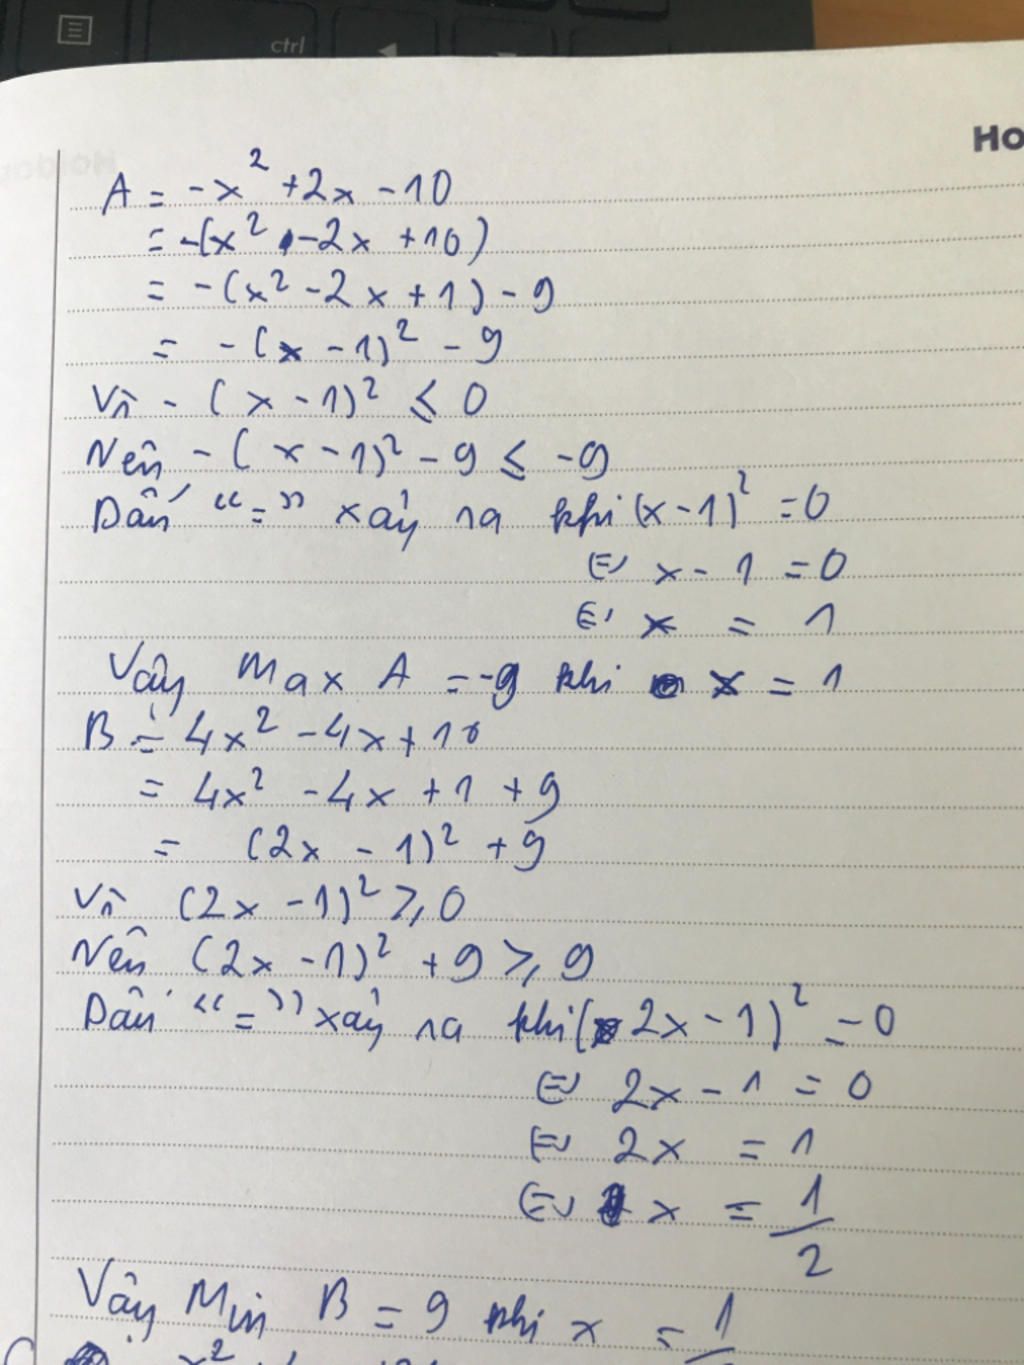 ctrl
Ho
A = -x² + 2x - 10
= -(x² - 2x + 10)
= -(x² - 2x + 1) - 9
= -(x - 1)² - 9
Vì -(x - 1)² ≤ 0
Nên -(x - 1)² - 9 ≤ -9
Dấu "=" xảy ra khi (x - 1)² = 0
⇔ x - 1 = 0
⇔ x = 1
Vậy Max A = -9 khi x = 1
B = 4x² - 4x + 10
= 4x² - 4x + 1 + 9
= (2x - 1)² + 9
Vì (2x - 1)² ≥ 0
Nên (2x - 1)² + 9 ≥ 9
Dấu "=" xảy ra khi (2x - 1)² = 0
⇔ 2x - 1 = 0
⇔ 2x = 1
⇔ x = 1/2
Vậy Min B = 9 khi x = 1